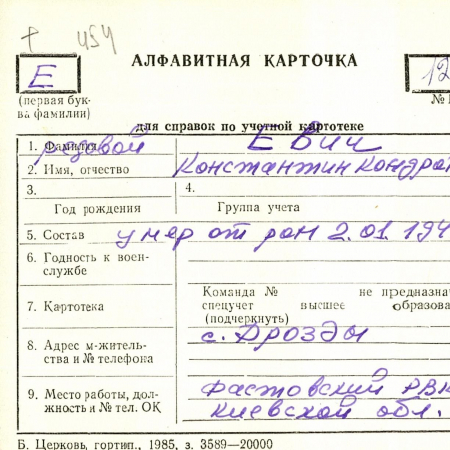 † 454
АЛФАВИТНАЯ КАРТОЧКА
Е
12
(первая бук-
ва фамилии)
№
для справок по учетной картотеке
1. Фамилия Евич
рядовой
2. Имя, отчество Константин Кондрат
3.
4.
Год рождения
Группа учета
5. Состав умер от ран 2.01.194
6. Годность к воен-
службе
7. Картотека
Команда № не предназна
спецучет высшее образова
(подчеркнуть)
8. Адрес м-житель-
ства и № телефона
с. Дрозды
9. Место работы, дол-
жность и № тел. ОК
Фастовский РВК
Киевской обл.
Б. Церковь, гортип., 1985, з. 3589—20000